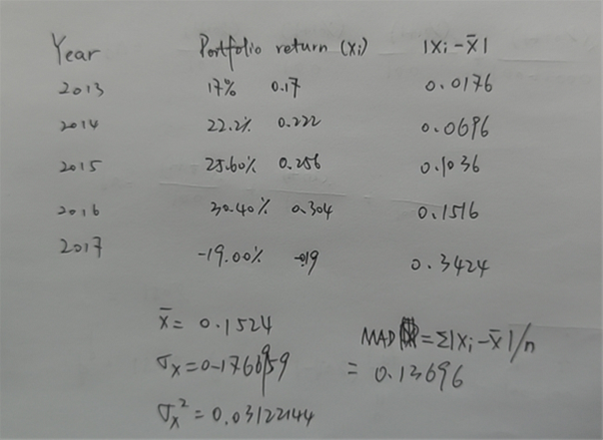 Year Portfolio return (xi) |xi-x̄|
2013 17% 0.17 0.0176
2014 22.2% 0.222 0.0696
2015 25.60% 0.256 0.1036
2016 30.40% 0.304 0.1516
2017 -19.00% -0.19 0.3424
x̄= 0.1524
σx=0.1766959
σx²=0.03122144
MAD =Σ|xi-x̄|/n
= 0.13696